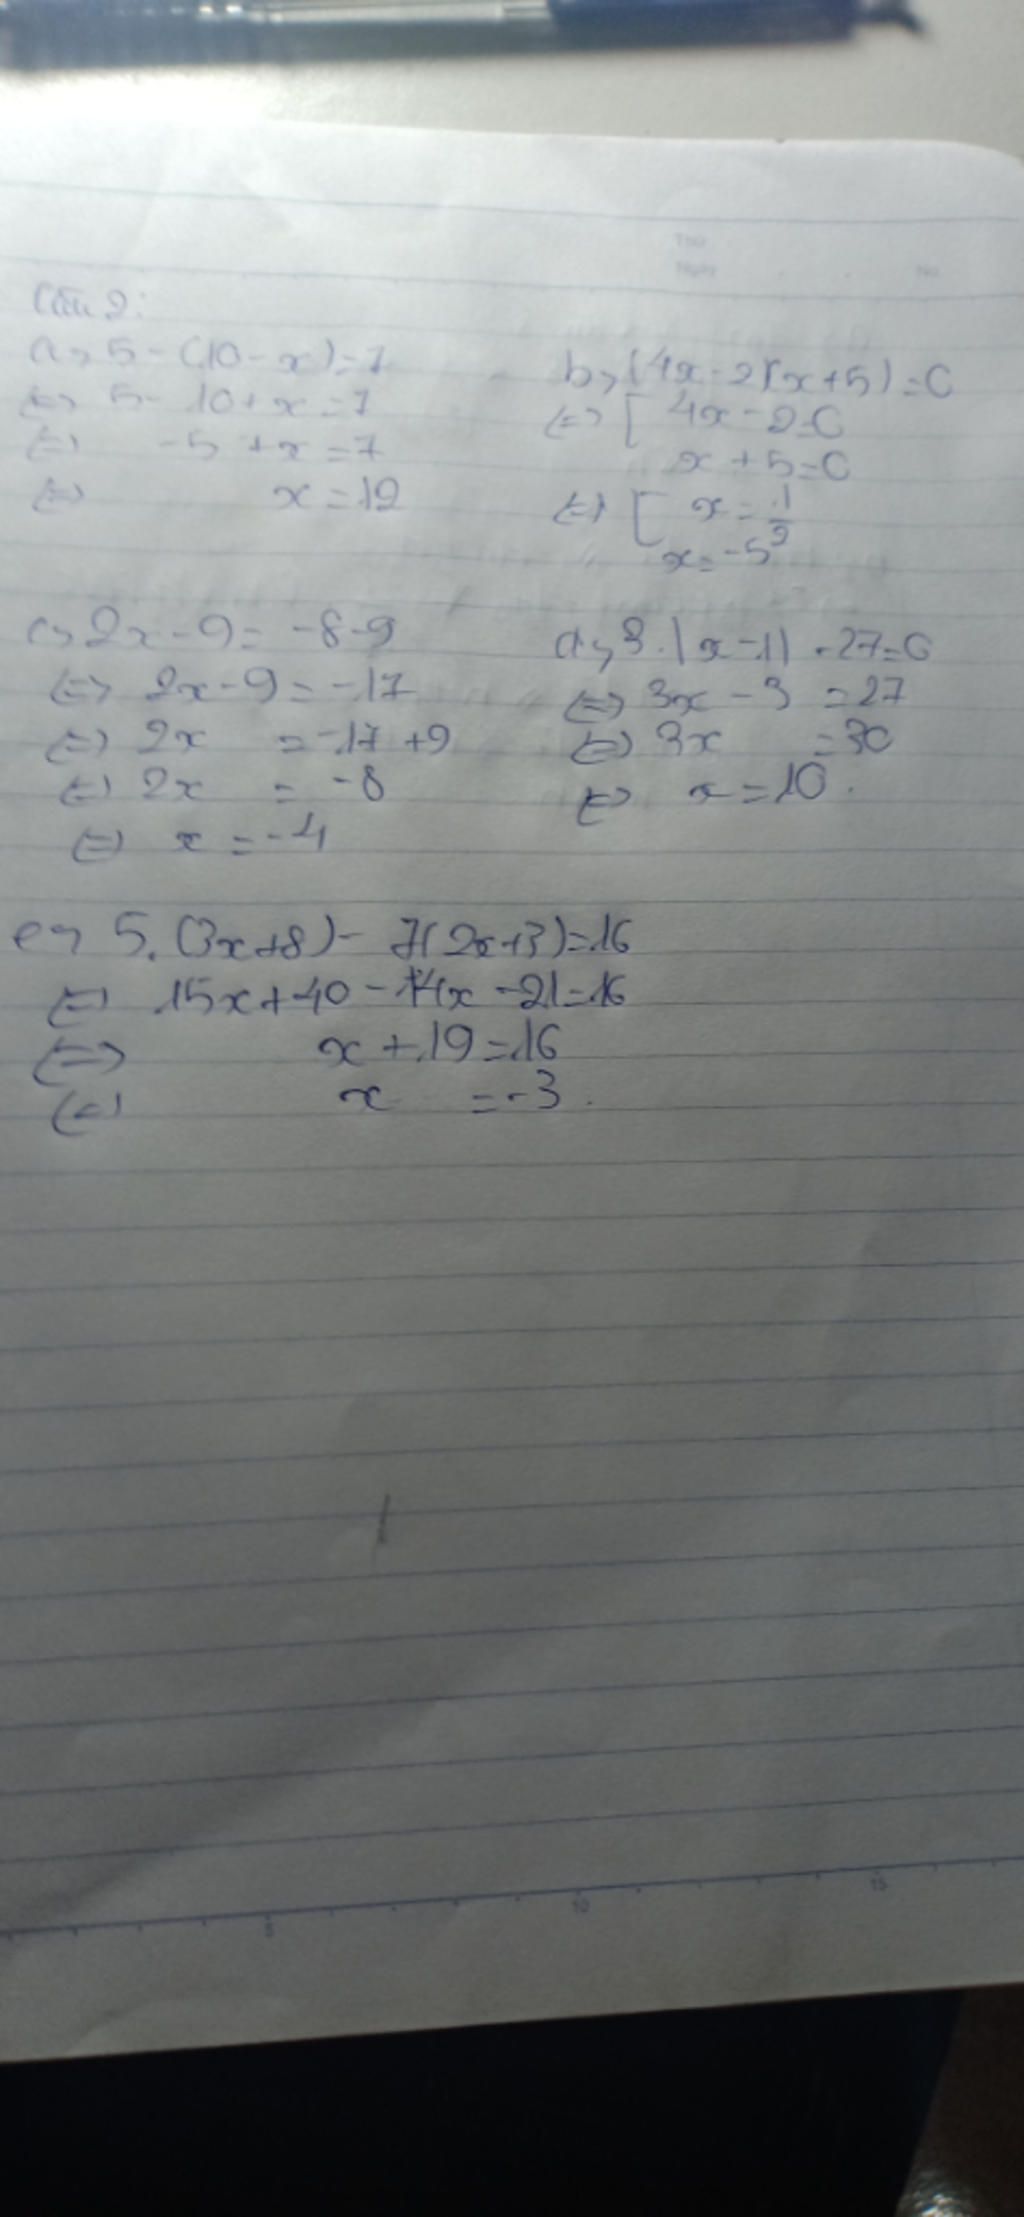 Thứ
Ngày No
Câu 2:
a, 5 - (10 - x) = 7
<=> 5 - 10 + x = 7
<=> -5 + x = 7
<=> x = 12
b, (4x - 2)(x + 5) = 0
<=> [ 4x - 2 = 0
x + 5 = 0
<=> [ x = 1/2
x = -5
c, 2x - 9 = -8-9
<=> 2x - 9 = -17
<=> 2x = -17 + 9
<=> 2x = -8
<=> x = -4
d, 3.|x - 1| - 27 = 0
<=> 3x - 3 = 27
<=> 3x = 30
<=> x = 10.
e, 5.(3x + 8) - 7(2x + 3) = 16
<=> 15x + 40 - 14x - 21 = 16
<=> x + 19 = 16
<=> x = -3.
5 10 15